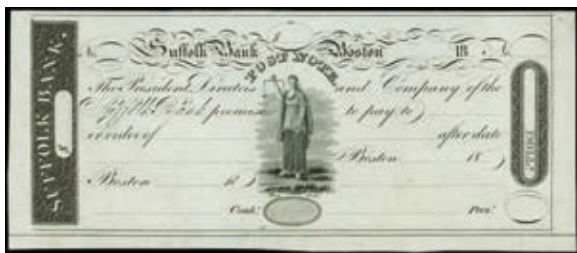 SUFFOLK BANK.
$
Suffolk Bank Boston 18
POST NOTE.
The President, Directors and Company of the
Suffolk Bank promise to pay to
or order of after date
Boston 18
Boston 18
Cash.r Pres.t
DOLLS.